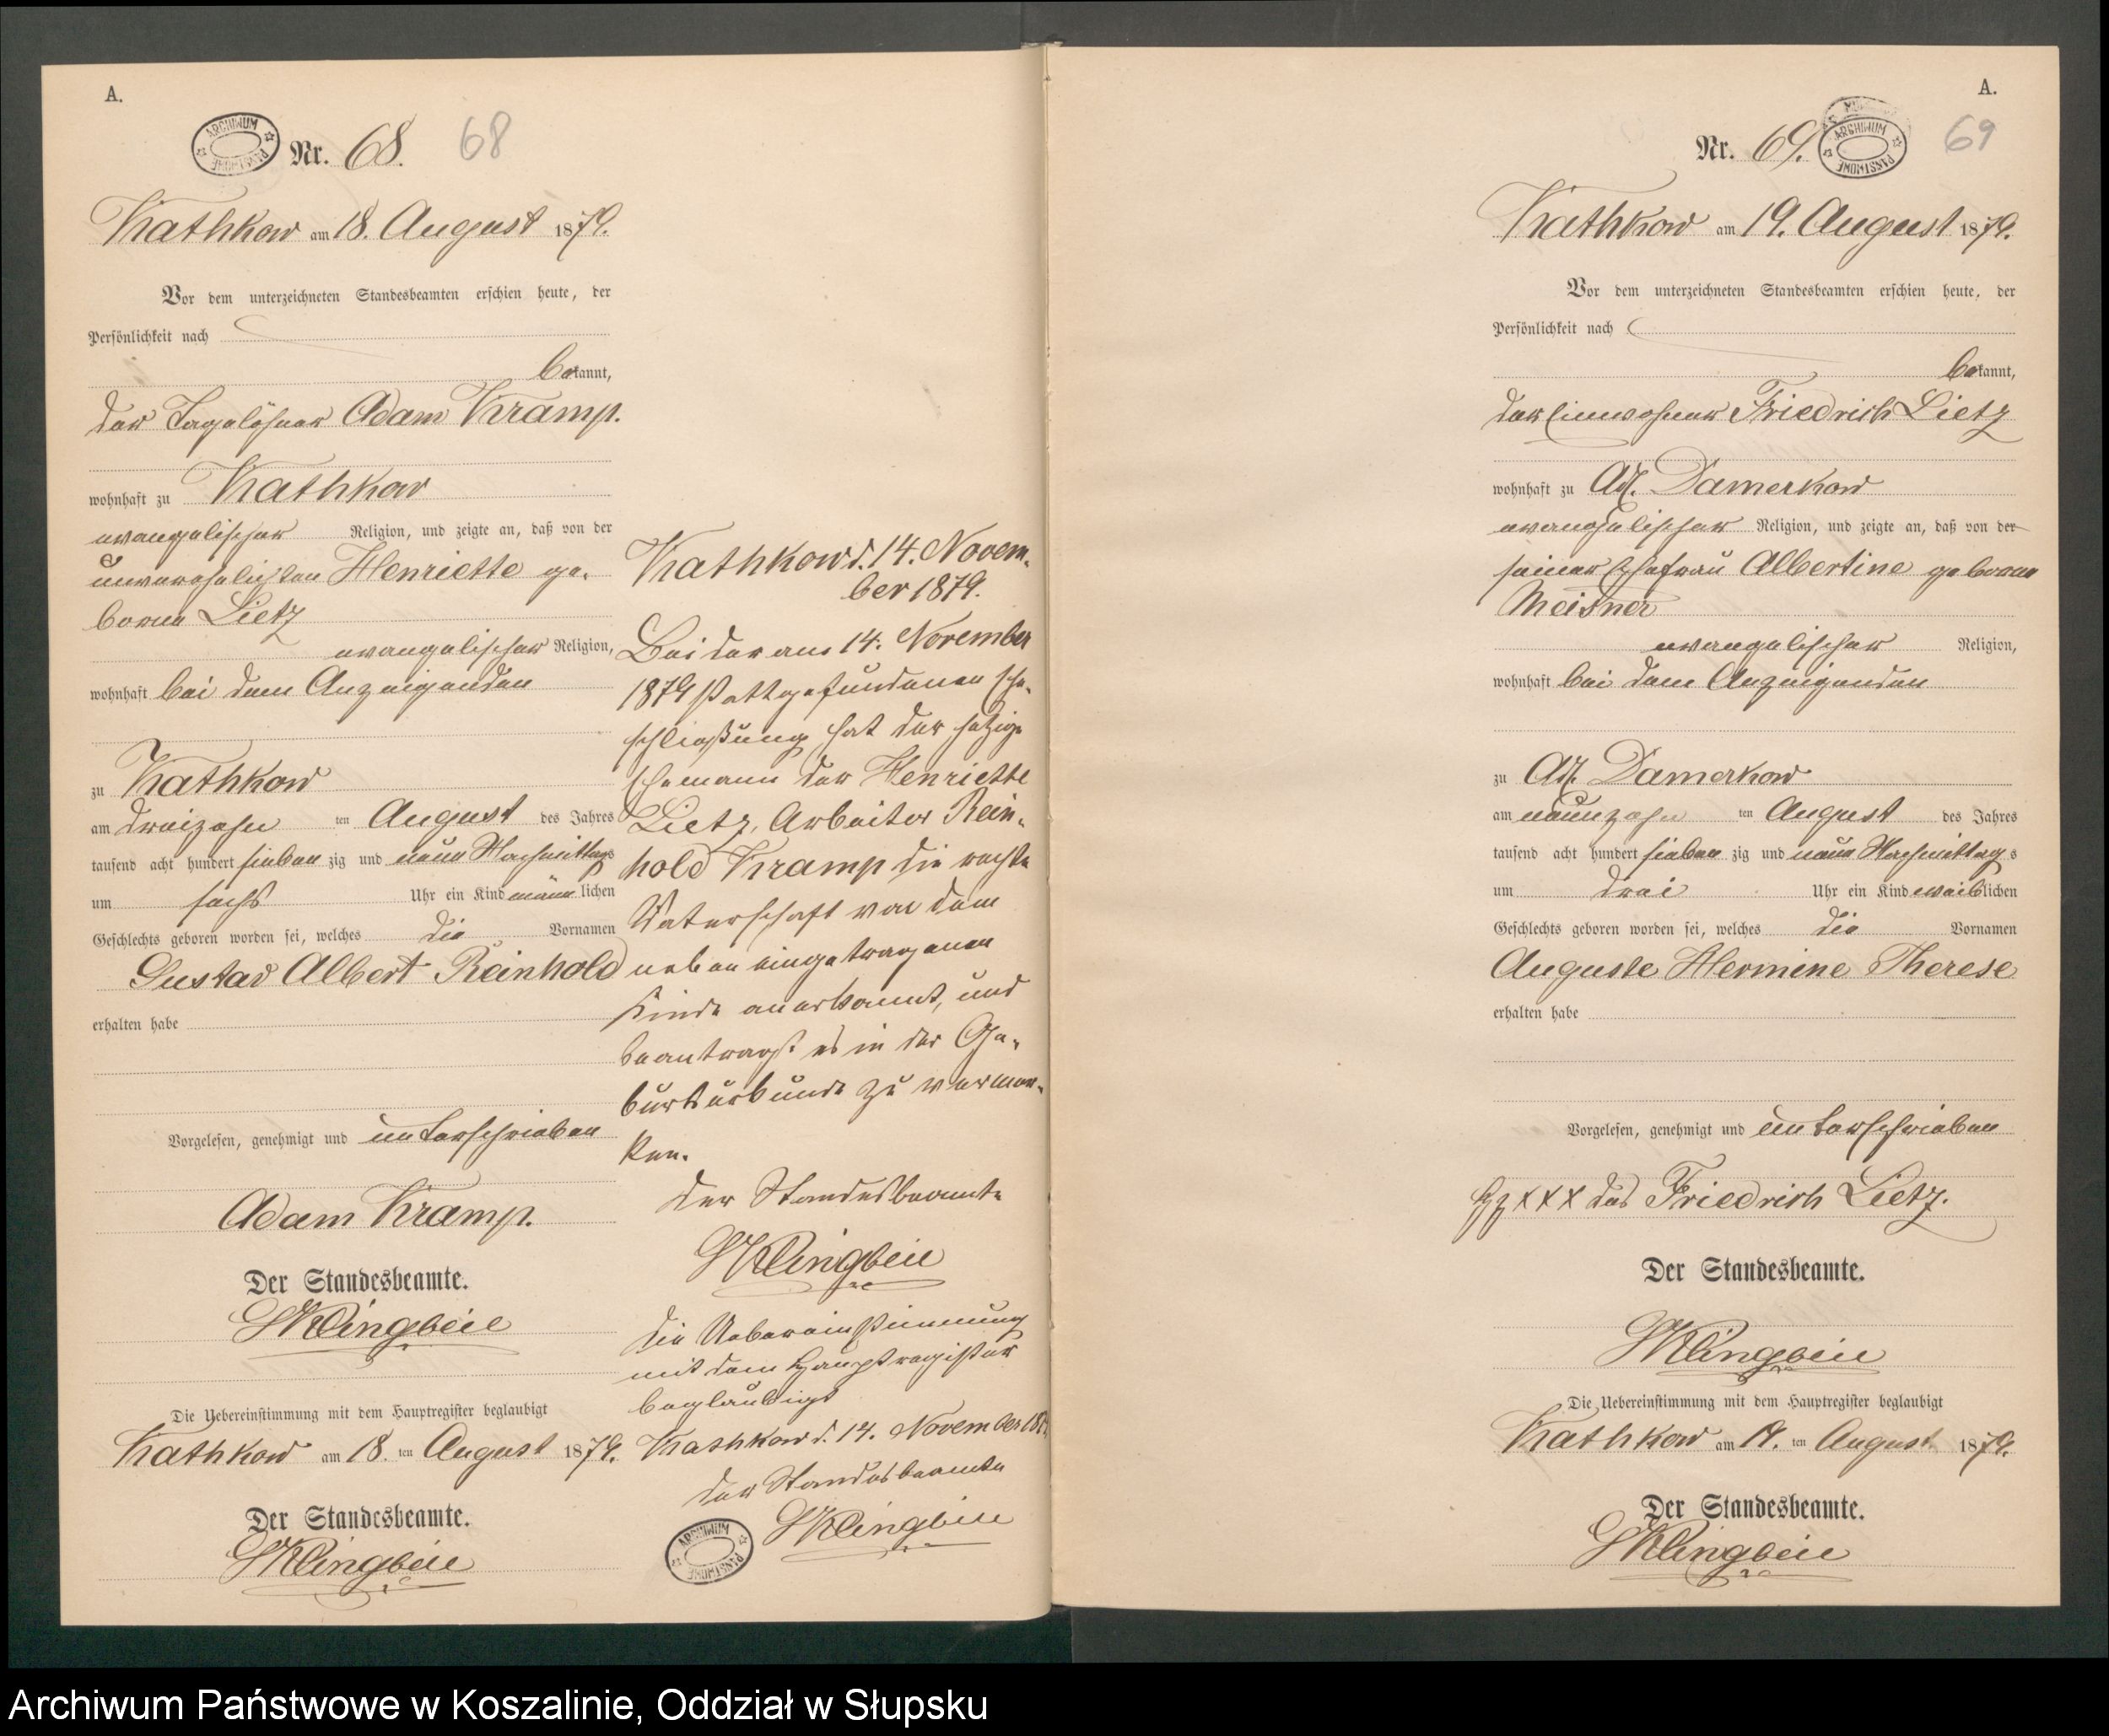 A.
ARCHIWUM PAŃSTWOWE
Nr. 68. 68
Kathkow am 18. August 1879.
Vor dem unterzeichneten Standesbeamten erschien heute, der
Persönlichkeit nach
bekannt,
der Tagelöhner Adam Kramp.
wohnhaft zu Kathkow
evangelischer Religion, und zeigte an, daß von der
unverehelichten Henriette ge-
borne Lietz
evangelischer Religion,
wohnhaft bei dem Anzeigenden
zu Kathkow
am dreizehn ten August des Jahres
tausend acht hundert sieben zig und neun Nachmittags
um sechs Uhr ein Kind männlichen
Geschlechts geboren worden sei, welches die Vornamen
Gustav Albert Reinhold
erhalten habe
Vorgelesen, genehmigt und unterschrieben
Adam Kramp.
Der Standesbeamte.
Klingbeil
Die Uebereinstimmung mit dem Hauptregister beglaubigt
Kathkow am 18. ten August 1879.
Der Standesbeamte.
Klingbeil
Kathkow d. 14. Novem-
ber 1879.
Bei der am 14. November
1879 stattgefundenen Ehe-
schließung hat der jetzige
Ehemann der Henriette
Lietz, Arbeiter Rein-
hold Kramp die rechte
Vaterschaft von dem
neben eingetragenen
Kinde anerkannt, und
beantragt es in der Ge-
burtsurkunde zu vermer-
ken.
Der Standesbeamte
Klingbeil
Die Uebereinstimmung
mit dem Hauptregister
beglaubigt
Kathkow d. 14. November 187
Der Standesbeamte
Klingbeil
ARCHIWUM PAŃSTWOWE
A.
Nr. 69. 69
ARCHIWUM PAŃSTWOWE
Kathkow am 19. August 1879.
Vor dem unterzeichneten Standesbeamten erschien heute, der
Persönlichkeit nach
bekannt,
der Einwohner Friedrich Lietz
wohnhaft zu Adl. Damerkow
evangelischer Religion, und zeigte an, daß von der
seiner Ehefrau Albertine geborne
Meisner
evangelischer Religion,
wohnhaft bei dem Anzeigenden
zu Adl. Damerkow
am neunzehn ten August des Jahres
tausend acht hundert sieben zig und neun Nachmittags
um drei Uhr ein Kind weiblichen
Geschlechts geboren worden sei, welches die Vornamen
Auguste Hermine Therese
erhalten habe
Vorgelesen, genehmigt und unterschrieben
Hz XXX des Friedrich Lietz.
Der Standesbeamte.
Klingbeil
Die Uebereinstimmung mit dem Hauptregister beglaubigt
Kathkow am 19. ten August 1879.
Der Standesbeamte.
Klingbeil
Archiwum Państwowe w Koszalinie, Oddział w Słupsku